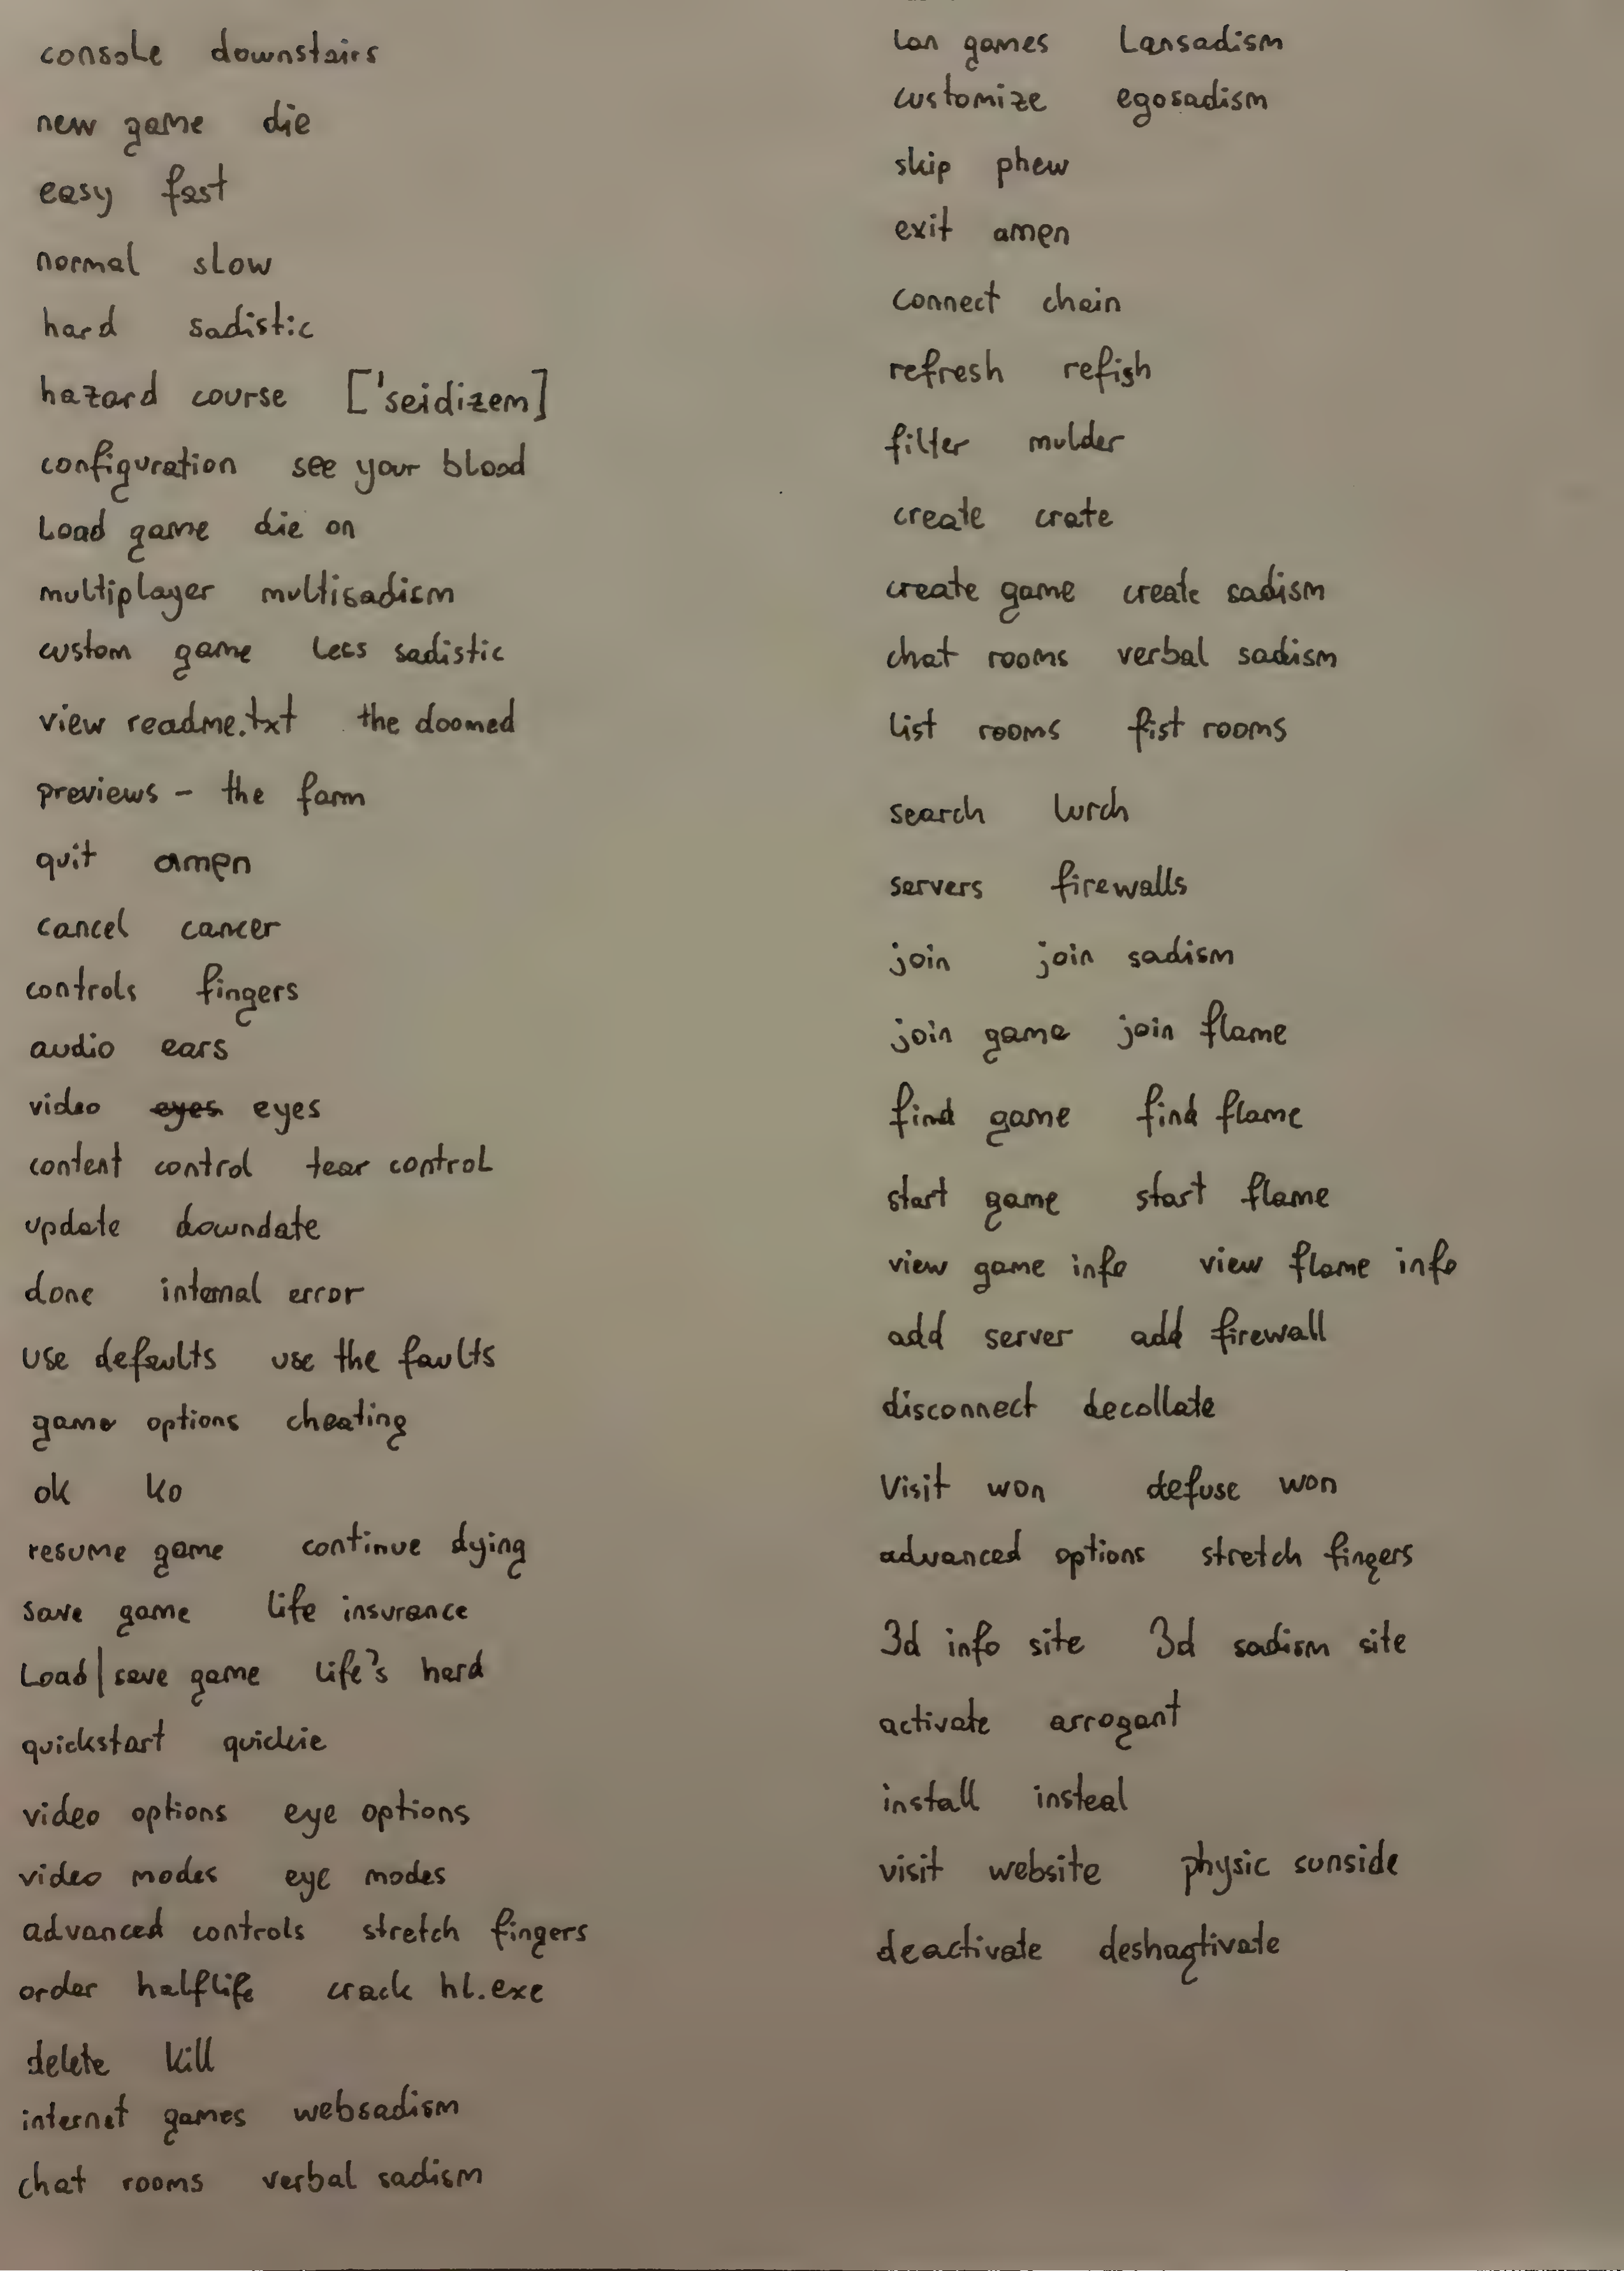 console downstairs
new game die
easy fast
normal slow
hard sadistic
hazard course ['seidizem]
configuration see your blood
Load game die on
multiplayer multisadism
custom game less sadistic
view readme.txt the doomed
previews - the farm
quit amen
cancel cancer
controls fingers
audio ears
video eyes eyes
content control tear control
update downdate
done internal error
use defaults use the faults
game options cheating
ok ko
resume game continue dying
save game life insurance
Load|save game life's hard
quickstart quickie
video options eye options
video modes eye modes
advanced controls stretch fingers
order halflife crack hl.exe
delete kill
internet games websadism
chat rooms verbal sadism
lan games Lansadism
customize egosadism
skip phew
exit amen
connect chain
refresh refish
filter mulder
create crate
create game create sadism
chat rooms verbal sadism
list rooms fist rooms
search lurch
servers firewalls
join join sadism
join game join flame
find game find flame
start game start flame
view game info view flame info
add server add firewall
disconnect decollate
Visit won defuse won
advanced options stretch fingers
3d info site 3d sadism site
activate arrogant
install insteal
visit website physic sunside
deactivate deshagtivate